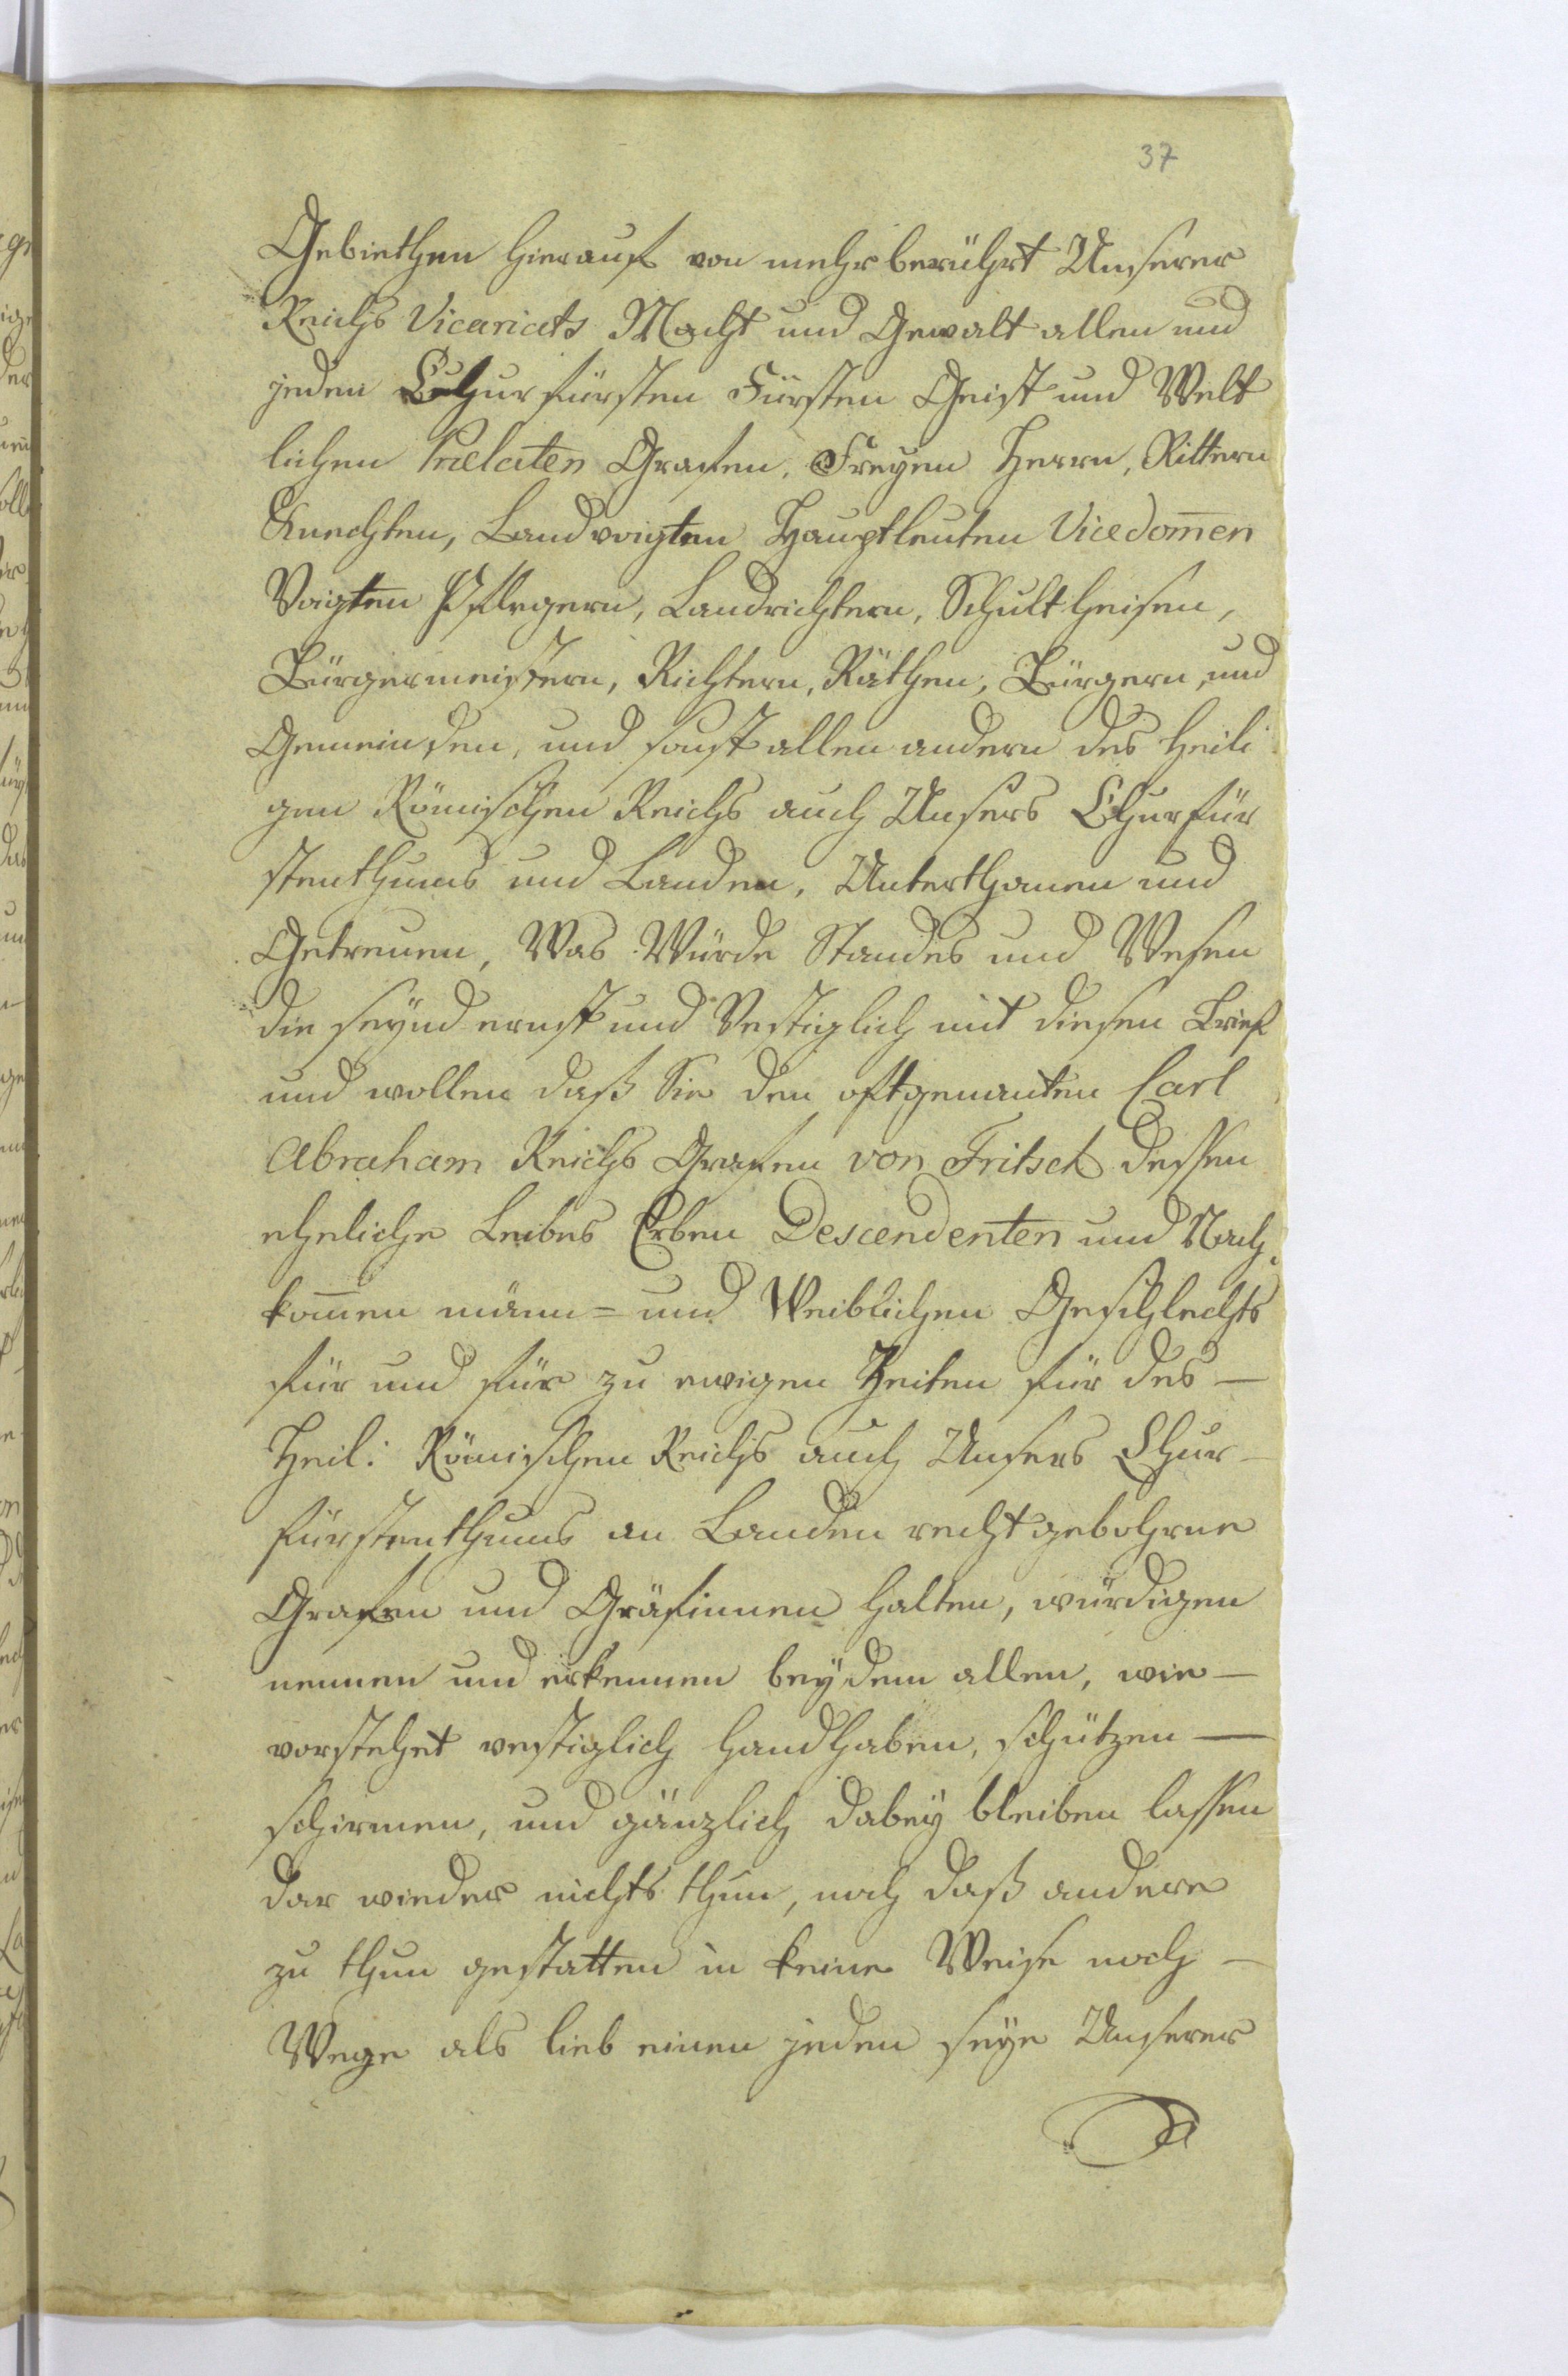 37
Gebiethen hierauf von mehrberührt Unserer
Reichs Vicariats Macht und Gewalt allen und
jeden Churfürsten Fürsten Geist und Welt
lichen Praelaten Grafen, Freyen Herrn, Rittern
Knechten, Landvoigten Hauptleuten Vicedom̄en
Voigten Pflegern, Landrichtern, Schultheisen,
Bürgermeistern, Richtern, Räthen, Bürgern, und
Gemeinden, und sonst allen andern des Heili
gen Römischen Reichs auch Unsers Churfür
stenthums und Landen, Unterthanen und
Getreuen, Was Würde Standes und Wesen
die seynd ernst und Vestiglich mit diesen Brief
und wollen daß Sie den oftgenanten Carl
Abraham Reichs Grafen von Fritsch dessen
eheliche Leibes Erben Descendenten und Nach¬
kom̄en männ= und Weiblichen Geschlechts
für und für zu ewigen Zeiten für des —
Heil: Römischen Reichs auch Unsers Chur-
fürstenthums an Landen recht gebohrne
Grafen und Gräfinnen halten, würdigen
nennen und erkennen bey dem allen, wie —
vorstehet vestiglich handhaben, schützen —
schirmen, und gänzlich dabey bleiben lassen
dar wieder nichts thun, noch daß andere
zu thun gestatten in keine Weise noch —
Wege als lieb einen jeden seye Unserer